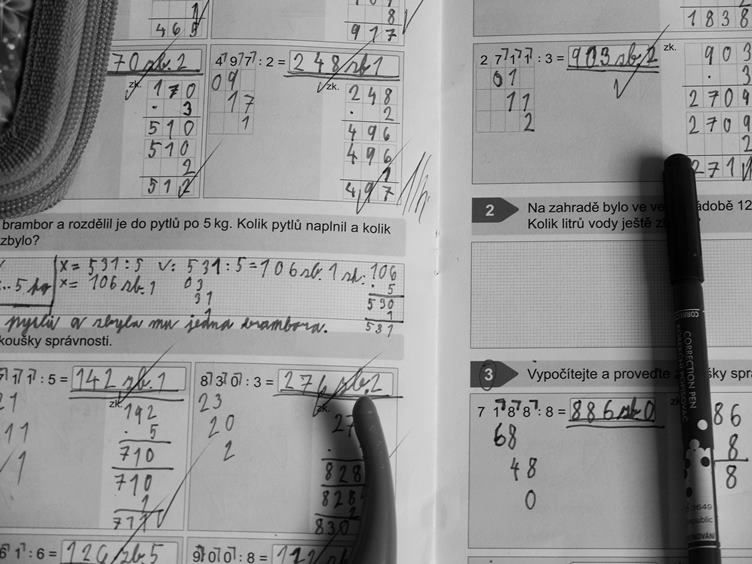 465
8
917
1838
70 zb. 2
zk.
170
. 3
510
510
2
512
497 : 2 = 248 zb 1
09
17
1
zk.
248
. 2
496
496
1
497
2711 : 3 = 903 zb. 2
01
11
2
zk.
903
3
2709
2709
2
271
brambor a rozdělil je do pytlů po 5 kg. Kolik pytlů naplnil a kolik
zbylo?
x = 531 : 5 V: 531 : 5 = 106 zb. 1 zk: 106
.. 5 kg x = 106 zb. 1 03 . 5
31 530
1 1
531
pytlů a zbyla mu jedna brambora.
koušky správnosti.
: 5 = 142 zb. 1
21
11
1
zk.
142
. 5
710
710
1
711
830 : 3 = 276 zb. 2
23
20
2
zk.
27
828
828
2
830
61 : 6 = 126 zb 5
900 : 8 =
2
Na zahradě bylo ve
ádobě 12
Kolik litrů vody ještě
3
Vypočítejte a proveďte
ušky sprá
7 188 : 8 = 886 zb 0
68
48
0
86
8
8
CORRECTION PEN